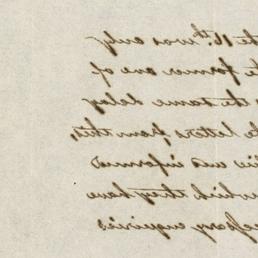 the 16th. was only
former one of
the same delay
letters from this,
was informed
which they have
enquiries